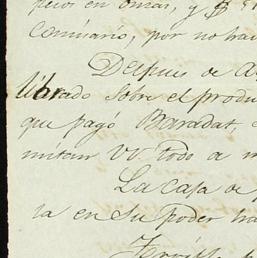 pesos en onzas, y
Comisario, por no ha
Despues de
librado sobre el produ
que pagó Baradat,
mitan VV. todo a m
La Casa de
ia en su poder ha